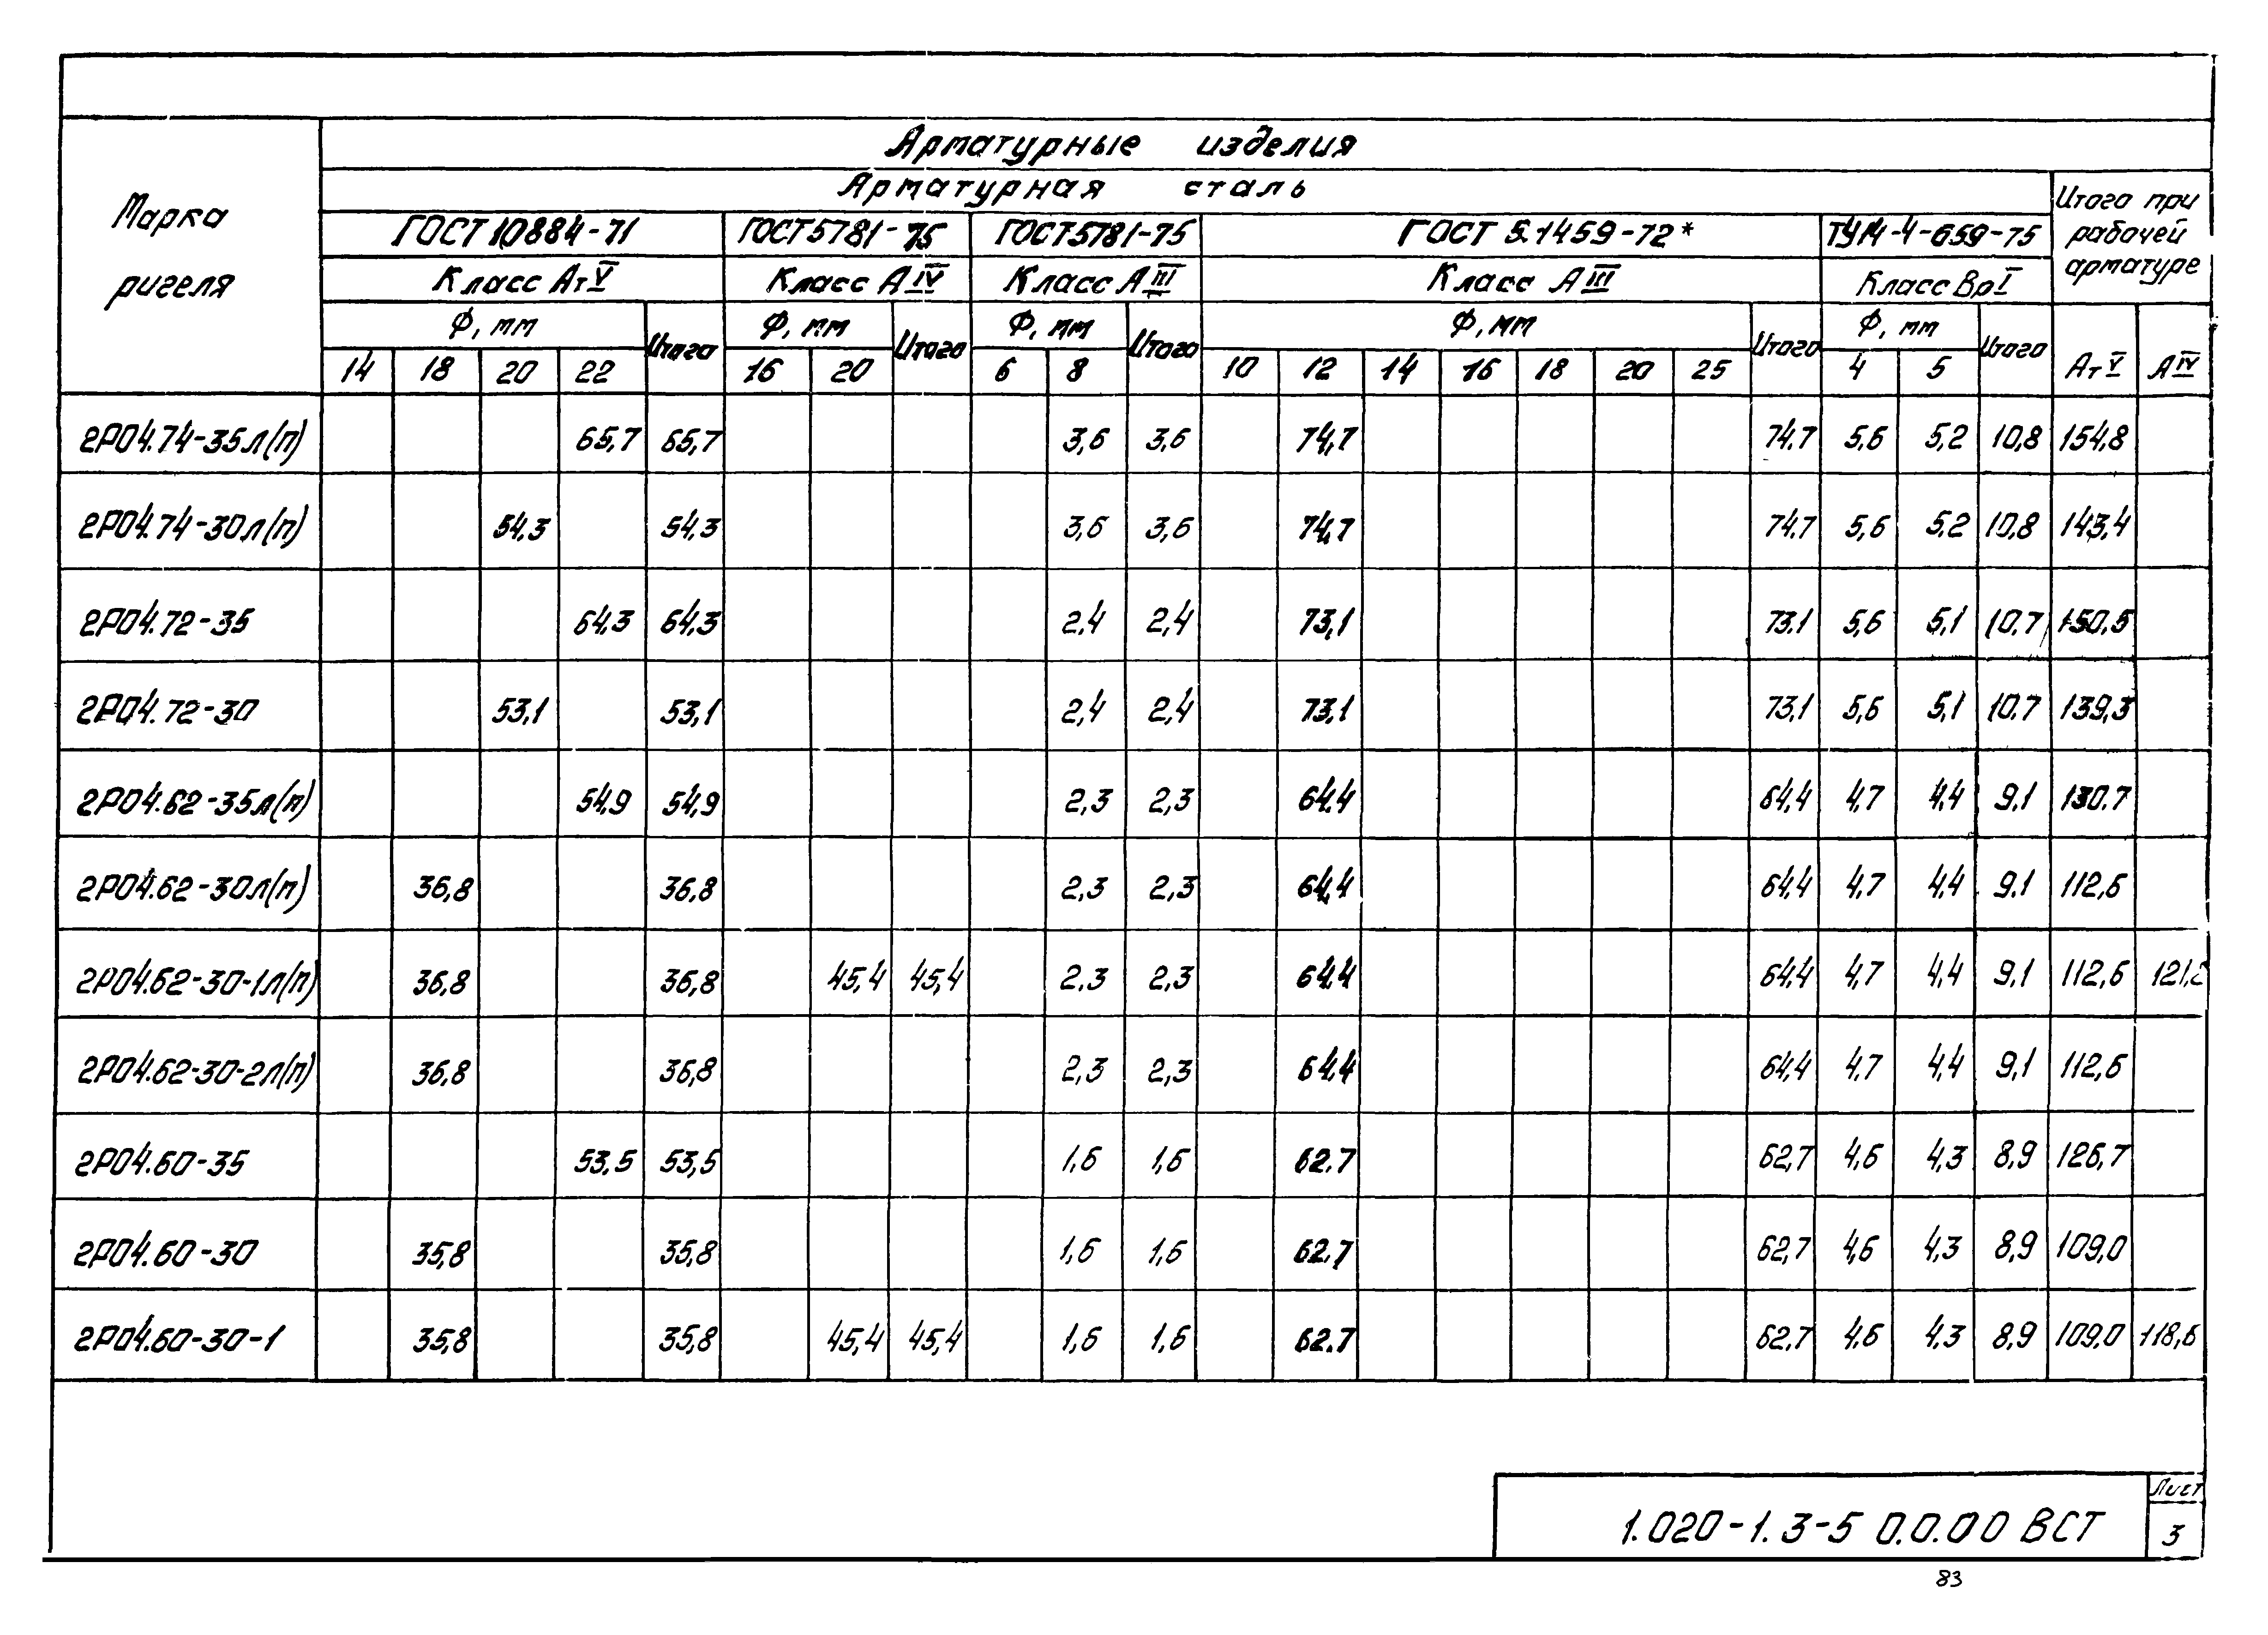 Арматурные изделия
Арматурная сталь
Марка ригеля
Итого при рабочей арматуре
ГОСТ 10884-71 ГОСТ 5781-75 ГОСТ 5781-75 ГОСТ 5.1459-72* ТУ14-4-659-75
Класс АтV Класс АIV Класс АIII Класс АIII Класс ВрI
Ф, мм Итого Ф, мм Итого Ф, мм Итого Ф, мм Итого Ф, мм Итого
14 18 20 22 16 20 6 8 10 12 14 16 18 20 25 4 5 АтV АIV
2Р04.74-35л(п) 65,7 65,7 3,6 3,6 74,7 74,7 5,6 5,2 10,8 154,8
2Р04.74-30л(п) 54,3 54,3 3,6 3,6 74,7 74,7 5,6 5,2 10,8 143,4
2Р04.72-35 64,3 64,3 2,4 2,4 73,1 73,1 5,6 5,1 10,7 150,5
2Р04.72-30 53,1 53,1 2,4 2,4 73,1 73,1 5,6 5,1 10,7 139,3
2Р04.62-35л(п) 54,9 54,9 2,3 2,3 64,4 64,4 4,7 4,4 9,1 130,7
2Р04.62-30л(п) 36,8 36,8 2,3 2,3 64,4 64,4 4,7 4,4 9,1 112,6
2Р04.62-30-1л(п) 36,8 36,8 45,4 45,4 2,3 2,3 64,4 64,4 4,7 4,4 9,1 112,6
2Р04.62-30-2л(п) 36,8 36,8 2,3 2,3 64,4 64,4 4,7 4,4 9,1 112,6
2Р04.60-35 53,5 53,5 1,6 1,6 62,7 62,7 4,6 4,3 8,9 126,7
2Р04.60-30 35,8 35,8 1,6 1,6 62,7 62,7 4,6 4,3 8,9 109,0
2Р04.60-30-1 35,8 35,8 45,4 45,4 1,6 1,6 62,7 62,7 4,6 4,3 8,9 109,0 118,6
1.020-1.3-5 0.0.00 ВСТ
Лист
3
83